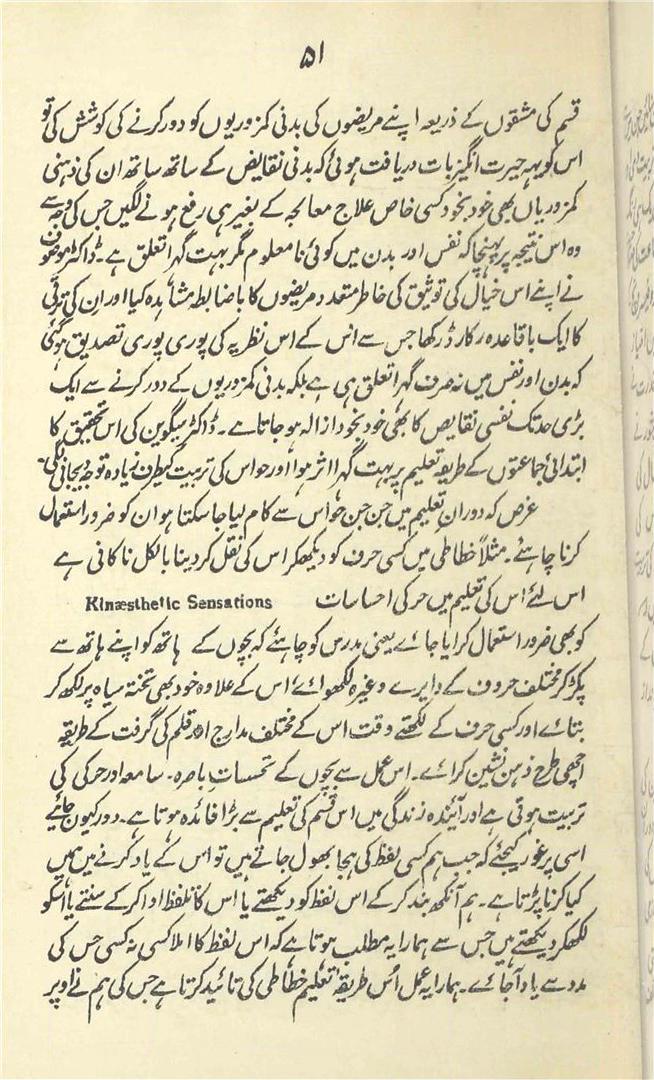 ۵۱
قسم کی مشقوں کے ذریعہ اپنے مریضوں کی بدنی کمزوریوں کو دور کرنے کی کوشش کی تو
اس کو یہہ حیرت انگیز بات دریافت ہوئی کہ بدنی نقایض کے ساتھ ساتھ ان کی ذہنی
کمزوریاں بھی خود بخود کسی خاص علاج معالجہ کے بغیر ہی رفع ہونے لگیں جس کی وجہ سے
وہ اس نتیجہ پر پہنچا کہ نفس اور بدن میں کوئی نامعلوم مگر بہت گہرا تعلق ہے۔ ڈاکٹر موصوف
نے اپنے اس خیال کی توثیق کی خاطر متعدد مریضوں کا باضابطہ مشاہدہ کیا اور ان کی ترقی
کا ایک باقاعدہ رکارڈ رکھا جس سے اس کے اس نظریہ کی پوری پوری تصدیق ہوگئی
کہ بدن اور نفس میں نہ صرف گہرا تعلق ہی ہے بلکہ بدنی کمزوریوں کے دور کرنے سے ایک
بڑی حد تک نفسی نقایص کا بھی خود بخود ازالہ ہو جاتا ہے۔ ڈاکٹر سیگوین کی اس تحقیق کا
ابتدائی جماعتوں کے طریقہ تعلیم پر بہت گہرا اثر ہوا اور حواس کی تربیت کیطرف زیادہ توجہ دیجانی لگی۔
غرض کہ دوران تعلیم میں جن جن حواس سے کام لیا جا سکتا ہو ان کو ضرور استعمال
کرنا چاہئے۔ مثلاً خطاطی میں کسی حرف کو دیکھکر اس کی نقل کر دینا بالکل ناکافی ہے
اس لئے اس کی تعلیم میں حرکی احساسات Kinæsthetic Sensations
کو بھی ضرور استعمال کرایا جائے یعنی مدرس کو چاہئے کہ بچوں کے ہاتھ کو اپنے ہاتھ سے
پکڑ کر مختلف حروف کے دایرے وغیرہ لکھوائے اس کے علاوہ خود بھی تختہ سیاہ پر لکھ کر
بتائے اور کسی حرف کے لکھتے وقت اس کے مختلف مدارج اور قلم کی گرفت کے طریقہ
اچھی طرح ذہن نشین کرائے۔ اس عمل سے بچوں کے تحسسات باصرہ۔ سامعہ اور حرکی کی
تربیت ہوتی ہے اور آیندہ زندگی میں اس قسم کی تعلیم سے بڑا فائدہ ہوتا ہے۔ دور کیوں جائیے
اسی پر غور کیجئے کہ جب ہم کسی لفظ کی ہجا بھول جاتے ہیں تو اس کے یاد کرنے میں ہمیں
کیا کرنا پڑتا ہے۔ ہم آنکھ بند کر کے اس لفظ کو دیکھتے یا اس کا تلفظ ادا کر کے سنتے یا اسکو
لکھکر دیکھتے ہیں جس سے ہمارا یہ مطلب ہوتا ہے کہ اس لفظ کا املا کسی نہ کسی حس کی
مدد سے یاد آ جائے۔ ہمارا یہ عمل اُس طریقہ تعلیم خطاطی کی تائید کرتا ہے جس کی ہم نے اوپر